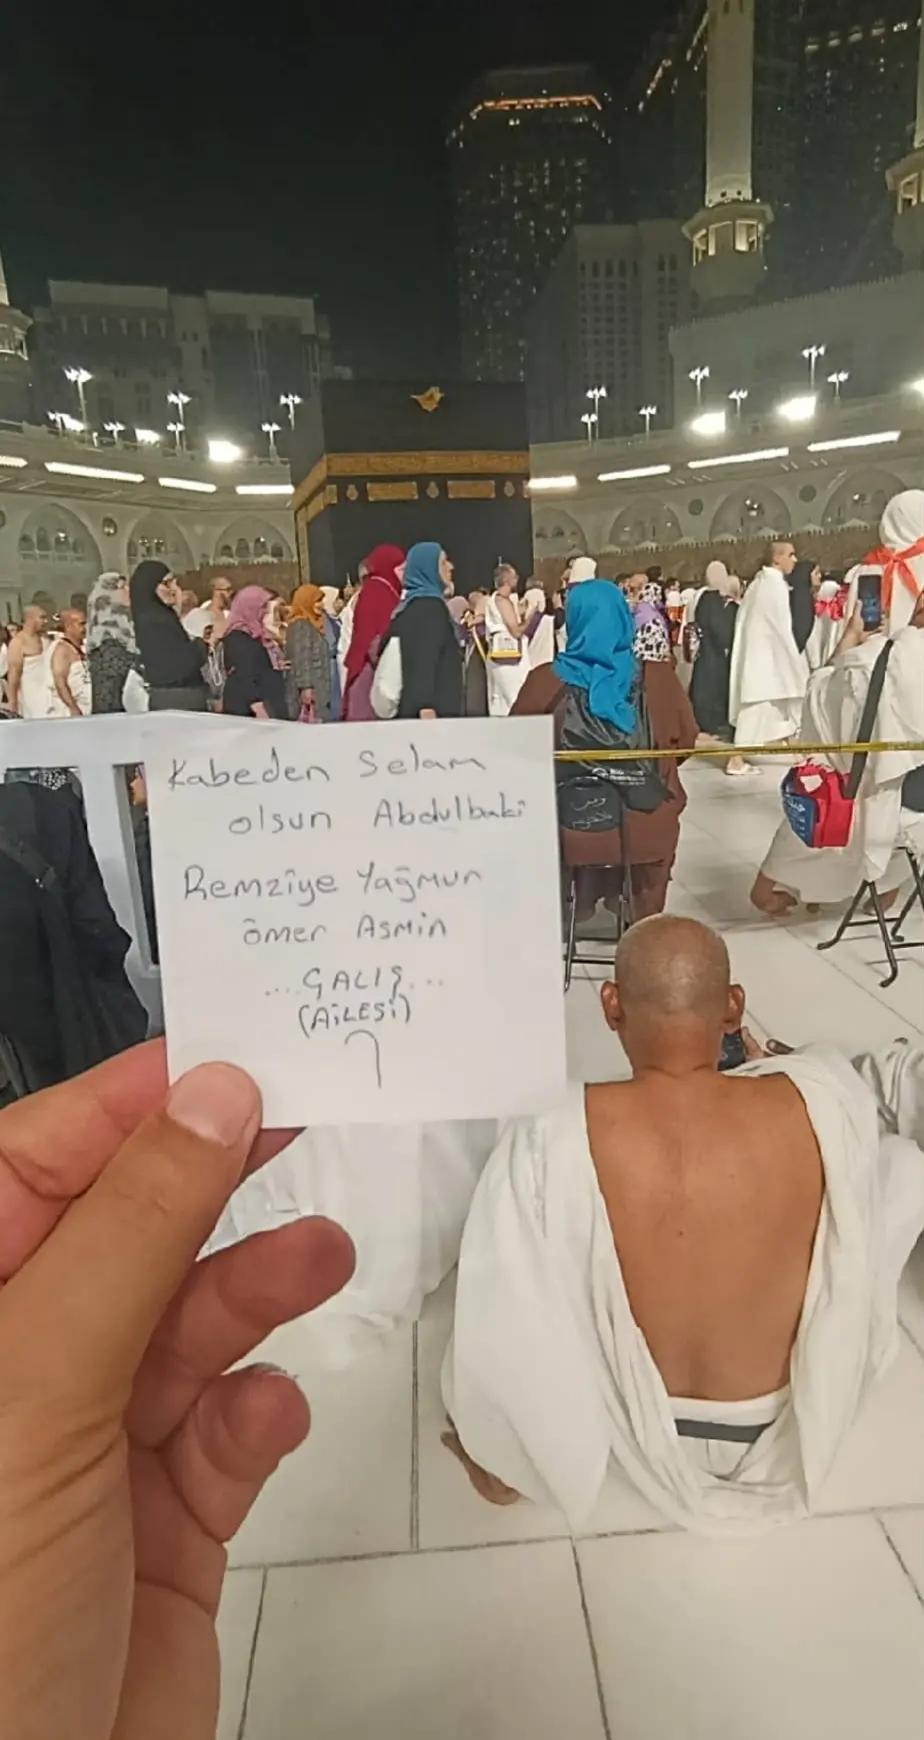 Kabeden Selam
olsun Abdulbaki
Remziye Yağmur
ömer Asmin
....ÇALIŞ...
(AİLESİ)